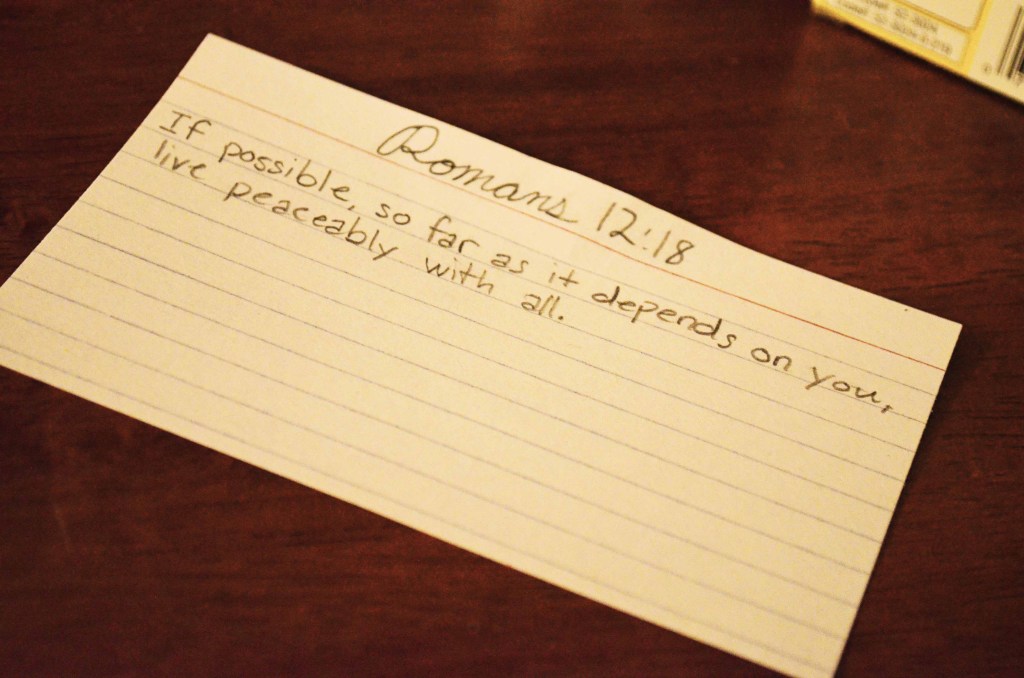 Romans 12:18
If possible, so far as it depends on you,
live peaceably with all.